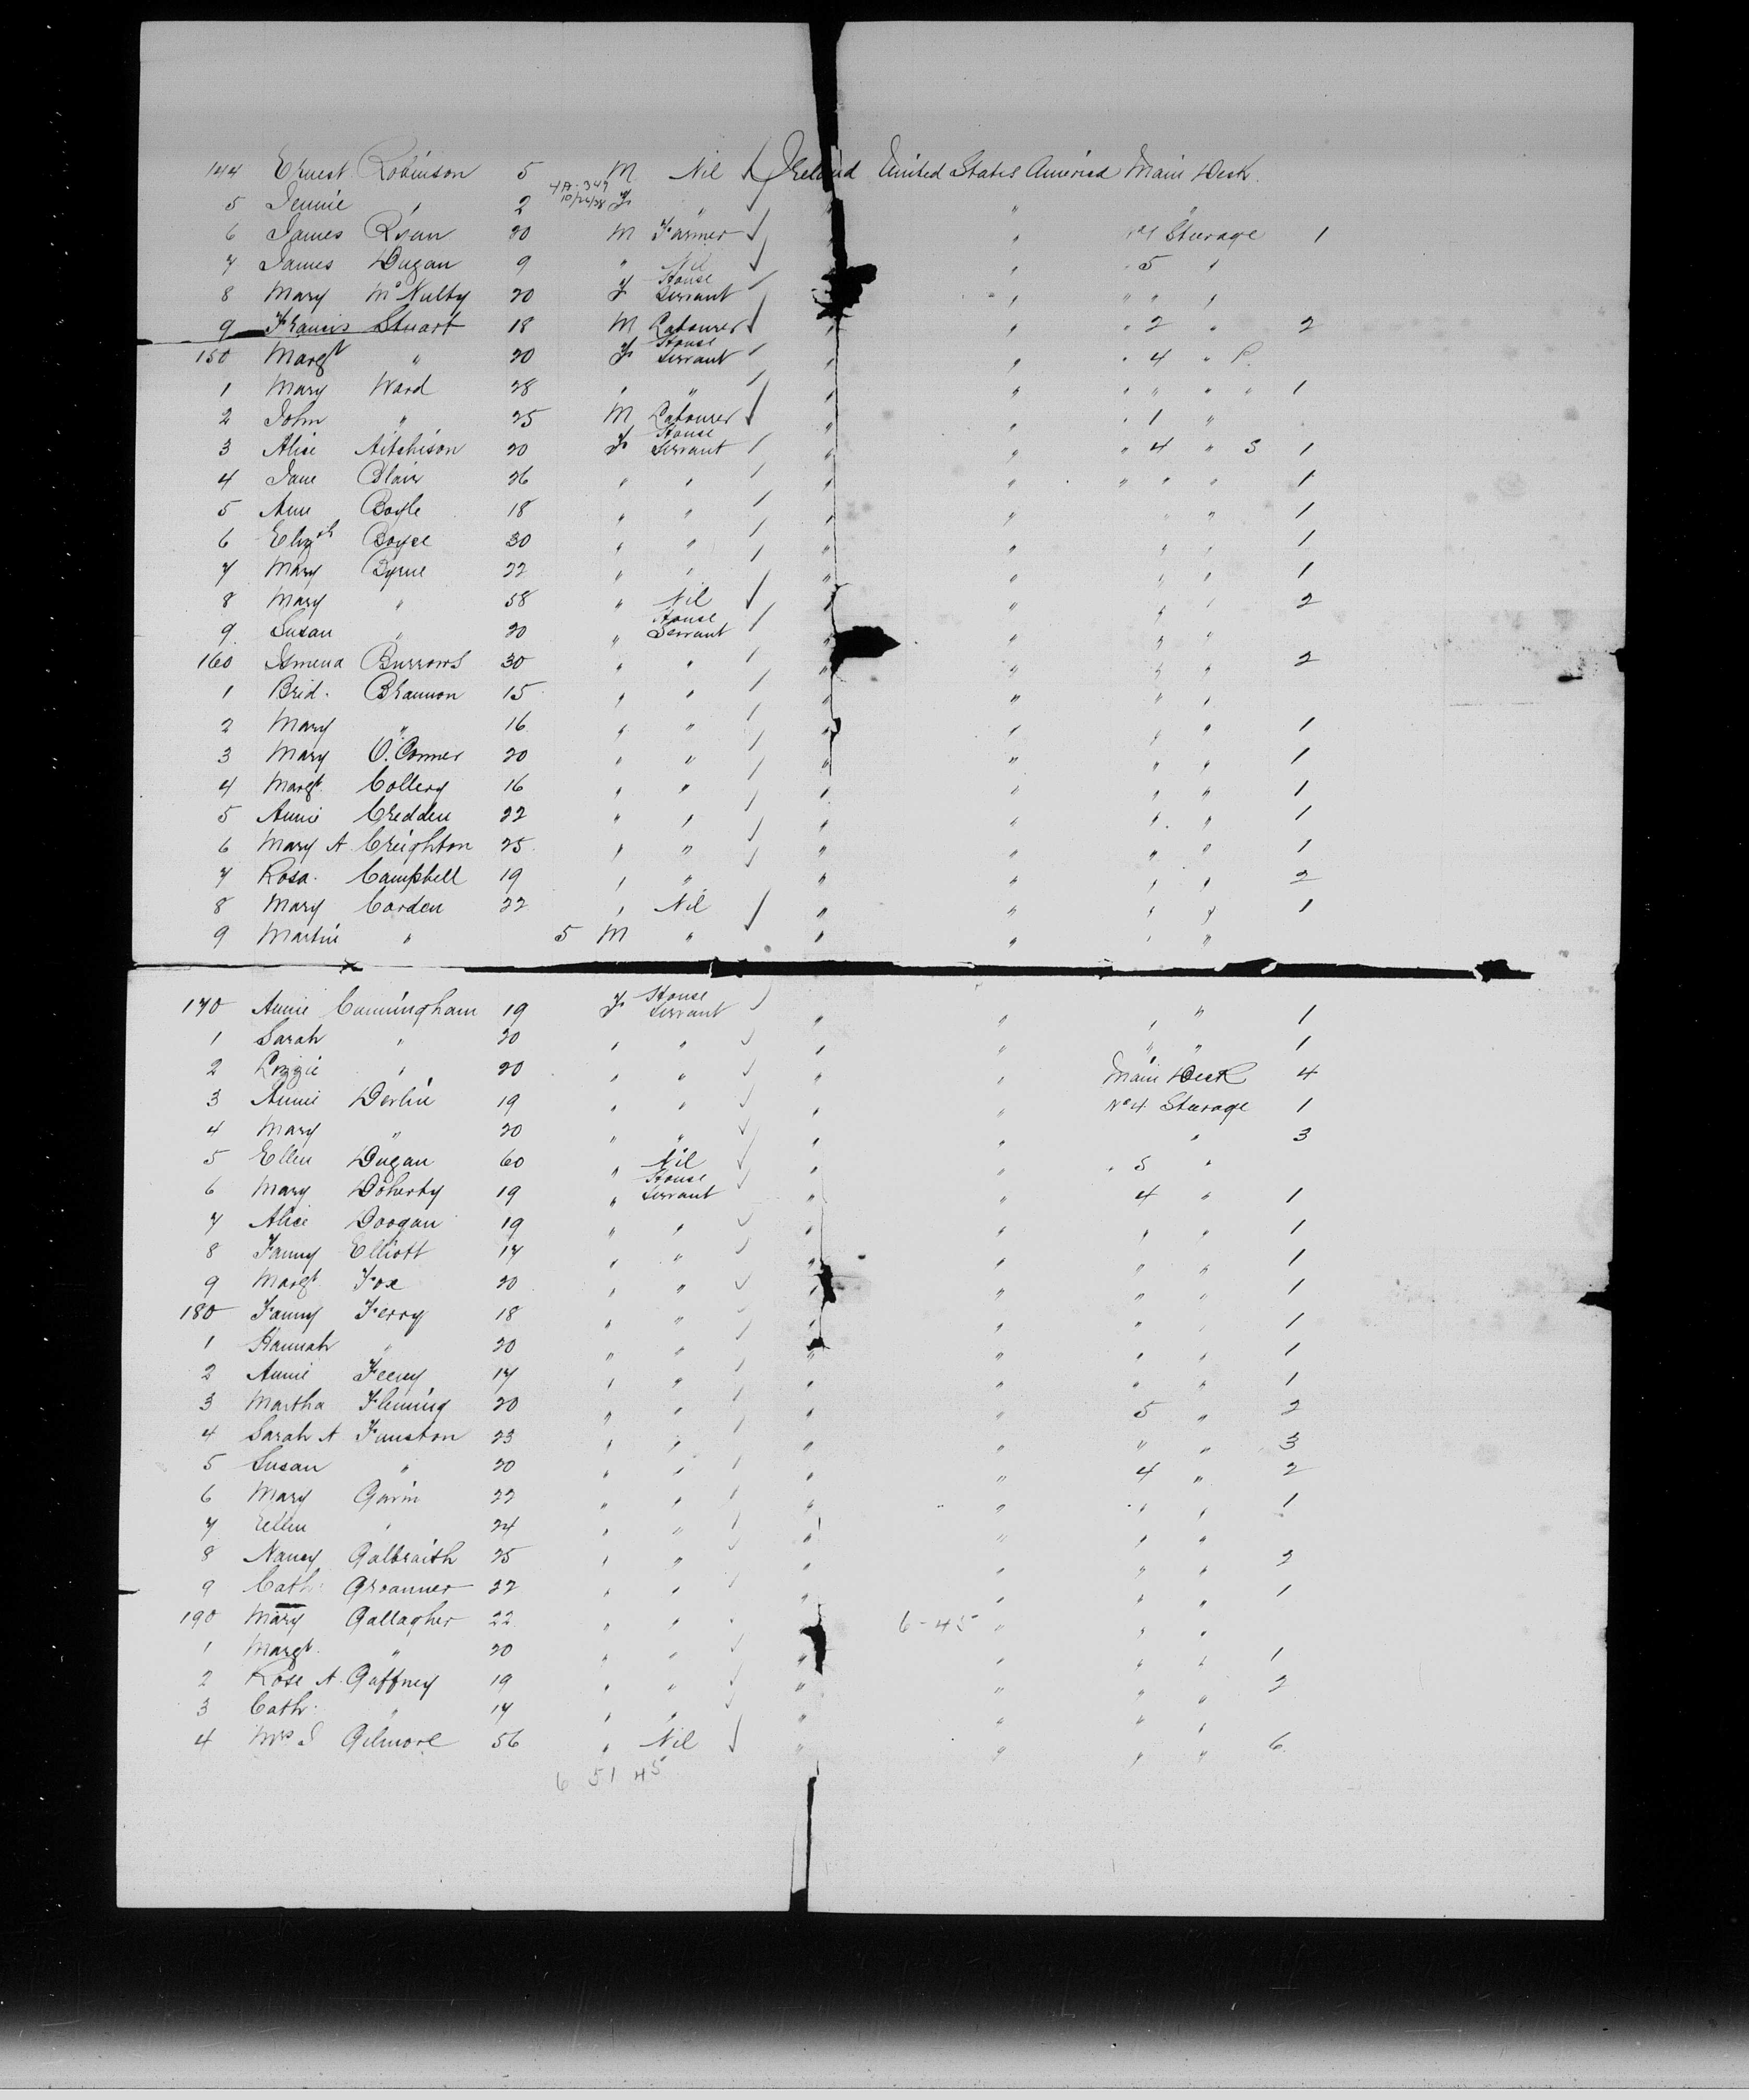 144 Ernest Robinson 5 M Nil Ireland United States America Main Deck
4A-347
5 Jennie " 2 10/26/28 F " " " "
6 James Ryan 20 M Farmer " " No 1 Steerage 1
7 James Dugan 9 " Nil " " " 5 "
8 Mary McNulty 20 F House Servant " " " " "
9 Francis Stuart 18 M Labourer " " " 2 " 2
150 Margt " 20 F House Servant " " " 4 " P.
1 Mary Ward 28 " " " " " " " " 1
2 John " 25 M Labourer " " " 1 "
3 Alice Aitchison 20 F House Servant " " " 4 " S 1
4 Jane Blair 26 " " " " " " " 1
5 Ann Boyle 18 " " " " " " 1
6 Elizth Boyce 30 " " " " " " 1
7 Mary Byrne 22 " " " " " " 1
8 Mary " 58 " Nil " " " " 2
9 Susan " 20 " House Servant " " " "
160 Ismena Burrows 30 " " " " " " 2
1 Brid. Brannon 15 " " " " " "
2 Mary " 16 " " " " " " 1
3 Mary O'Conner 20 " " " " " " 1
4 Margt Collery 16 " " " " " " 1
5 Annie Credden 22 " " " " " " 1
6 Mary A Creighton 25 " " " " " " 1
7 Rosa Campbell 19 " " " " " " 2
8 Mary Carden 22 " Nil " " " " 1
9 Martin " 5 M " " " " "
170 Annie Cunningham 19 F House Servant " " " " 1
1 Sarah " 20 " " " " " " 1
2 Lizzie " 20 " " " " Main Deck 4
3 Annie Devlin 19 " " " " No 4 Steerage 1
4 Mary " 20 " " " " " 3
5 Ellen Dugan 60 " Nil " " " 5 "
6 Mary Doherty 19 " House Servant " " 4 " 1
7 Alice Doogan 19 " " " " " " 1
8 Fanny Elliott 17 " " " " " " 1
9 Margt Fox 20 " " " " " " 1
180 Fanny Ferry 18 " " " " " " 1
1 Hannah " 20 " " " " " " 1
2 Annie Feeny 17 " " " " " " 1
3 Martha Fleming 20 " " " " 5 " 2
4 Sarah A Funston 23 " " " " " " 3
5 Susan " 20 " " " " 4 " 2
6 Mary Gavin 22 " " " " " " 1
7 Ellen " 24 " " " " " "
8 Nancy Galbraith 25 " " " " " " 2
9 Cath. 22 " " " " " " 1
190 Mary Gallagher 22 " " 6-45 " " "
1 Margt " 20 " " " " " " 1
2 Rose A. Gaffney 19 " " " " " " 2
3 Cath. " 17 " " " " " "
4 Mrs Gilmore 56 " Nil " " " " 6
6 51 45